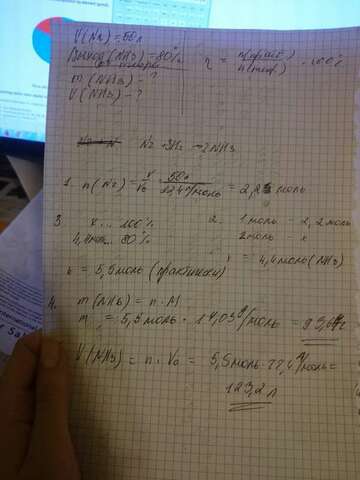 V(N2) = 50л
Выход (NH3) = 80%
от теории
m(NH3) - ?
V(NH3) - ?
η = n(практ) / n(теор) · 100%
N2 + 3H2 → 2NH3
1. n(N2) = V/V0 = 50л / 22,4 л/моль = 2,2 моль
2. 1 моль - 2,2 моль
2 моль - x
= 4,4 моль (NH3)
3. x ... 100%
4,4 моль ... 80%
x = 5,5 моль (практически)
4. m(NH3) = n · M
m = 5,5 моль · 17,03 г/моль = 93,6 г
V(NH3) = n · V0 = 5,5 моль · 22,4 л/моль =
123,2 л